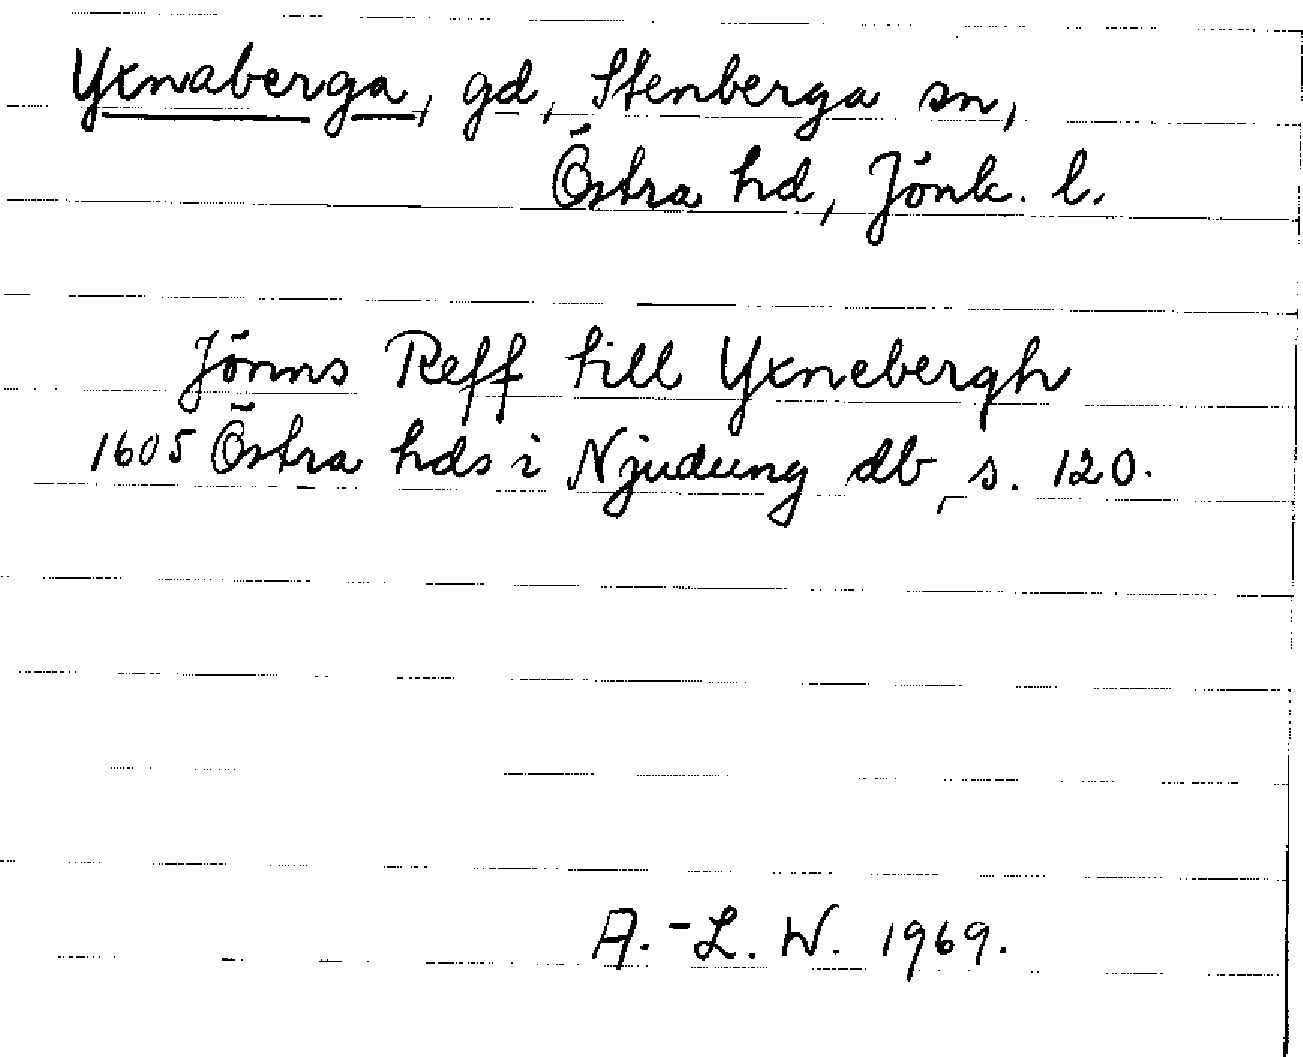 Yxnaberga, gd, Stenberga sn,
Östra hd, Jönk. l.
Jönns Reff till Yxnebergh
1605 Östra hds i Njudung db, s. 120.
A.-L. W. 1969.